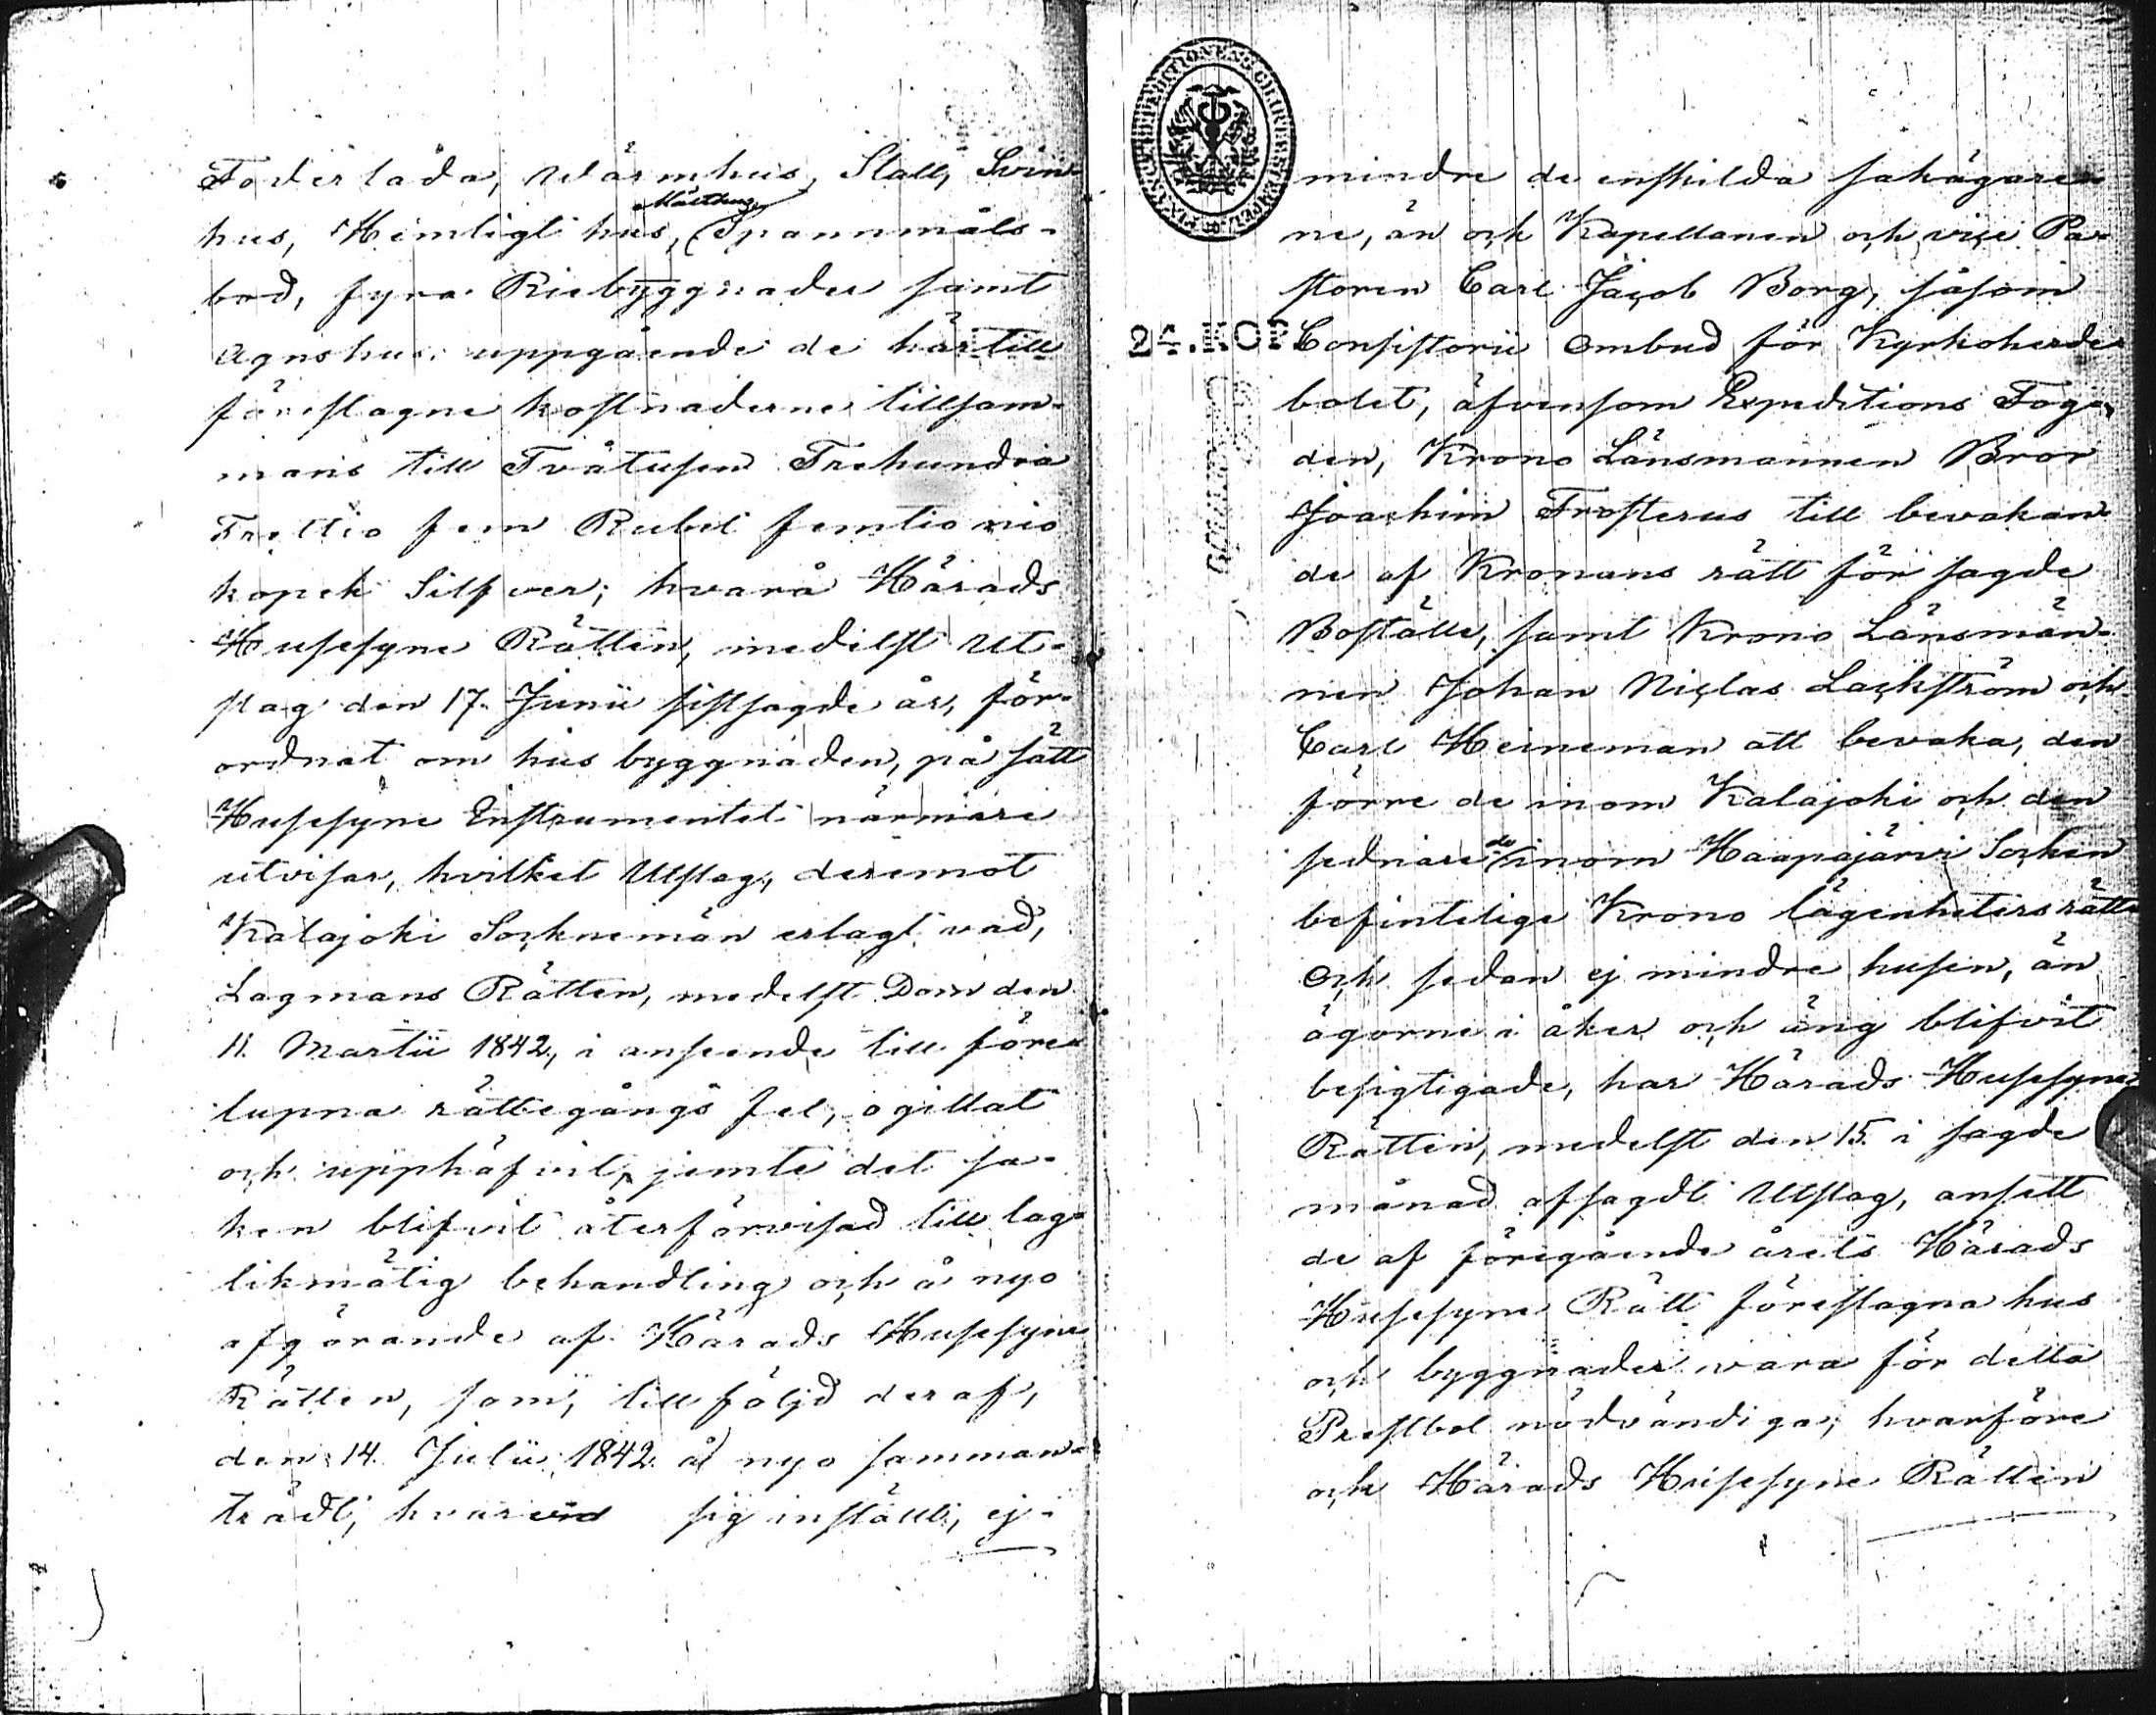 Foderlåda, Wärmhus, Stall, Svin
hus, Hemligt hus, Mälthus, Spannmåls-
bod, fyra Riebyggnader samt
Agnshus; uppgående de härtill
föreslagne kostnaderne tillsam-
mans till Tvåtusen Trehundra
Trettio fem Rubel femtio nio
kopek Silfver; hvarå Härads
Husesyne Rätten, medelst Ut-
slag den 17. Junii sistsagde år, för-
ordnat om hus byggnaden, på sätt
Husesyne Instrumentet närmare
utvisar, hvilket Utslag, deremot
Kalajoki Socknemän erlagt vad,
Lagmans Rätten, medelst Dom den
11. Martii 1842, i anseende till före-
lupna rättegångs fel, ogillat
och upphäfvit, jemte det sa-
ken blifvit återförvisad till lag-
likmätig behandling och å nyo
afgörande af Härads Husesyne
Rätten, som, till följd deraf,
den 14. Julii 1842 å nyo samman-
trädt, hvarvid sig inställt, ej
mindre de enskilda sakägare-
ne, än ock Kapellanen och vice Pa-
storen Carl Jacob Borg, såsom
24. KOP
Consistorii Ombud för Kyrkoherde
bolet, äfvensom Expeditions Fog-
den, Krono Länsmannen Bror
Joachim Frosterus till bevakan-
de af Kronans rätt för sagde
Boställe, samt Krono Länsmän-
nen Johan Niclas Lackström och
Carl Heineman att bevaka, den
förre de inom Kalajoki och den
sednare de inom Haapajärvi Socken
befintelige Krono lägenheters rätt
Och sedan ej mindre husen, än
ägorne i åker och äng blifvit
besigtigade, har Härads Husesyne
Rätten, medelst den 15. i sagde
månad afsagdt Utslag, ansett
de af föregående årets Härads
Husesyne Rätt föreslagna hus
och byggnader vara för detta
Prestbol nödvändiga; hvarföre
och Härads Husesyne Rätten